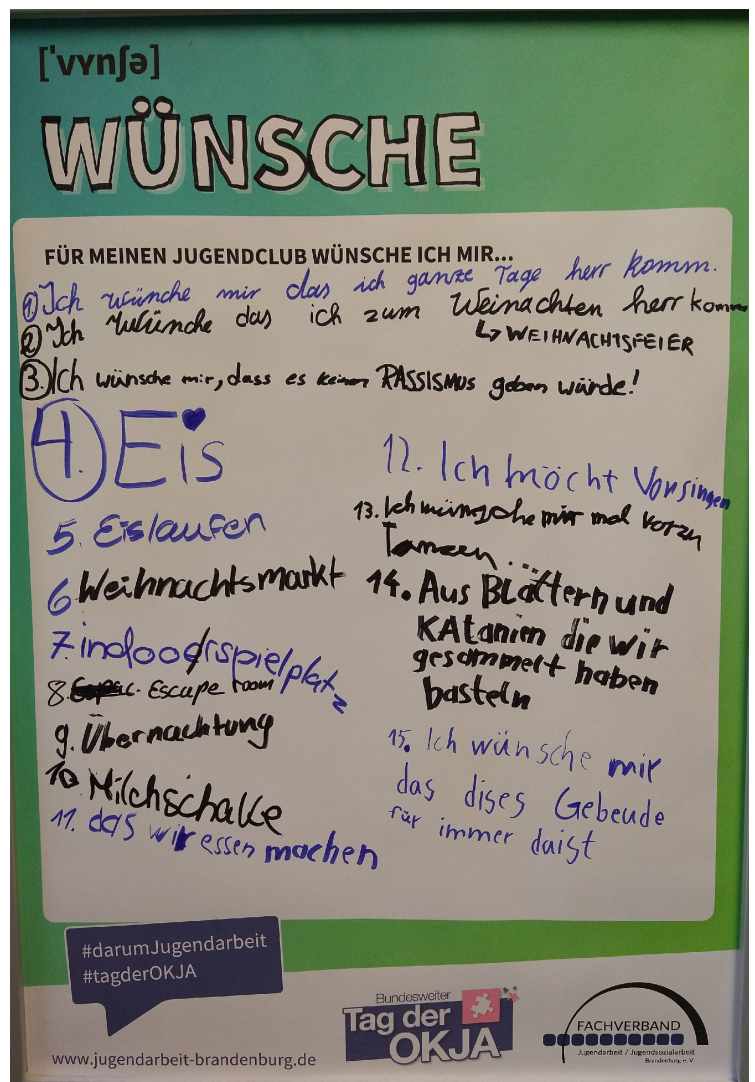 ['vʏnʃə]
WÜNSCHE
FÜR MEINEN JUGENDCLUB WÜNSCHE ICH MIR...
① Ich wünche mir das ich ganze Tage herr komm.
② Ich Wünche das ich zum Weinachten herr komm
↳ WEIHNACHTSFEIER
③. Ich wünsche mir, dass es keinen RASSISMUS geben würde!
4. Eis
5. Eislaufen
6 Weihnachtsmarkt
7. indoorspielplatz
8. Escape room
9. Übernachtung
10. Milchschake
11. das wir essen machen
12. Ich möcht Vorsingen
13. Ich wünsche mir mal vorzu
Tanzen...
14. Aus Blättern und
KAtanien die wir
gesammelt haben
basteln
15. Ich wünsche mir
das dises Gebeude
für immer daist
#darumJugendarbeit
#tagderOKJA
www.jugendarbeit-brandenburg.de
Bundesweiter
Tag der
OKJA
FACHVERBAND
Jugendarbeit / Jugendsozialarbeit
Brandenburg e.V.